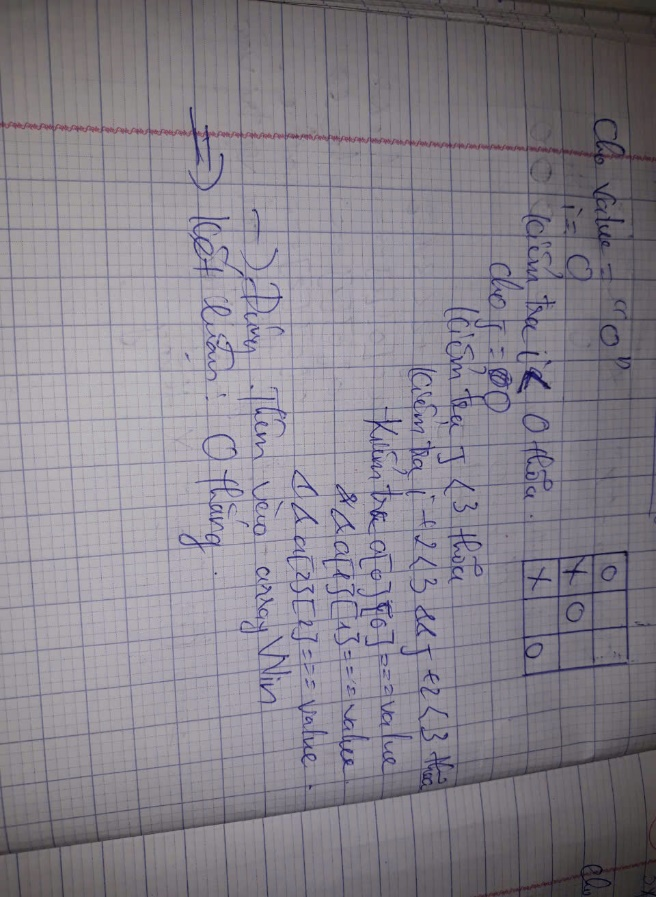 Cho value = "O"
i = 0
Kiểm tra i < 0 thỏa.
Cho j = 0
Kiểm tra J < 3 thỏa
Kiểm tra i + 2 < 3 && J + 2 < 3 thỏa
- Kiểm tra a[0][0] === value
&& a[1][1] === value
&& a[2][2] === value.
-) Đúng. Thêm vào array Win
=) Kết luận: O thắng.
O
X O
X O